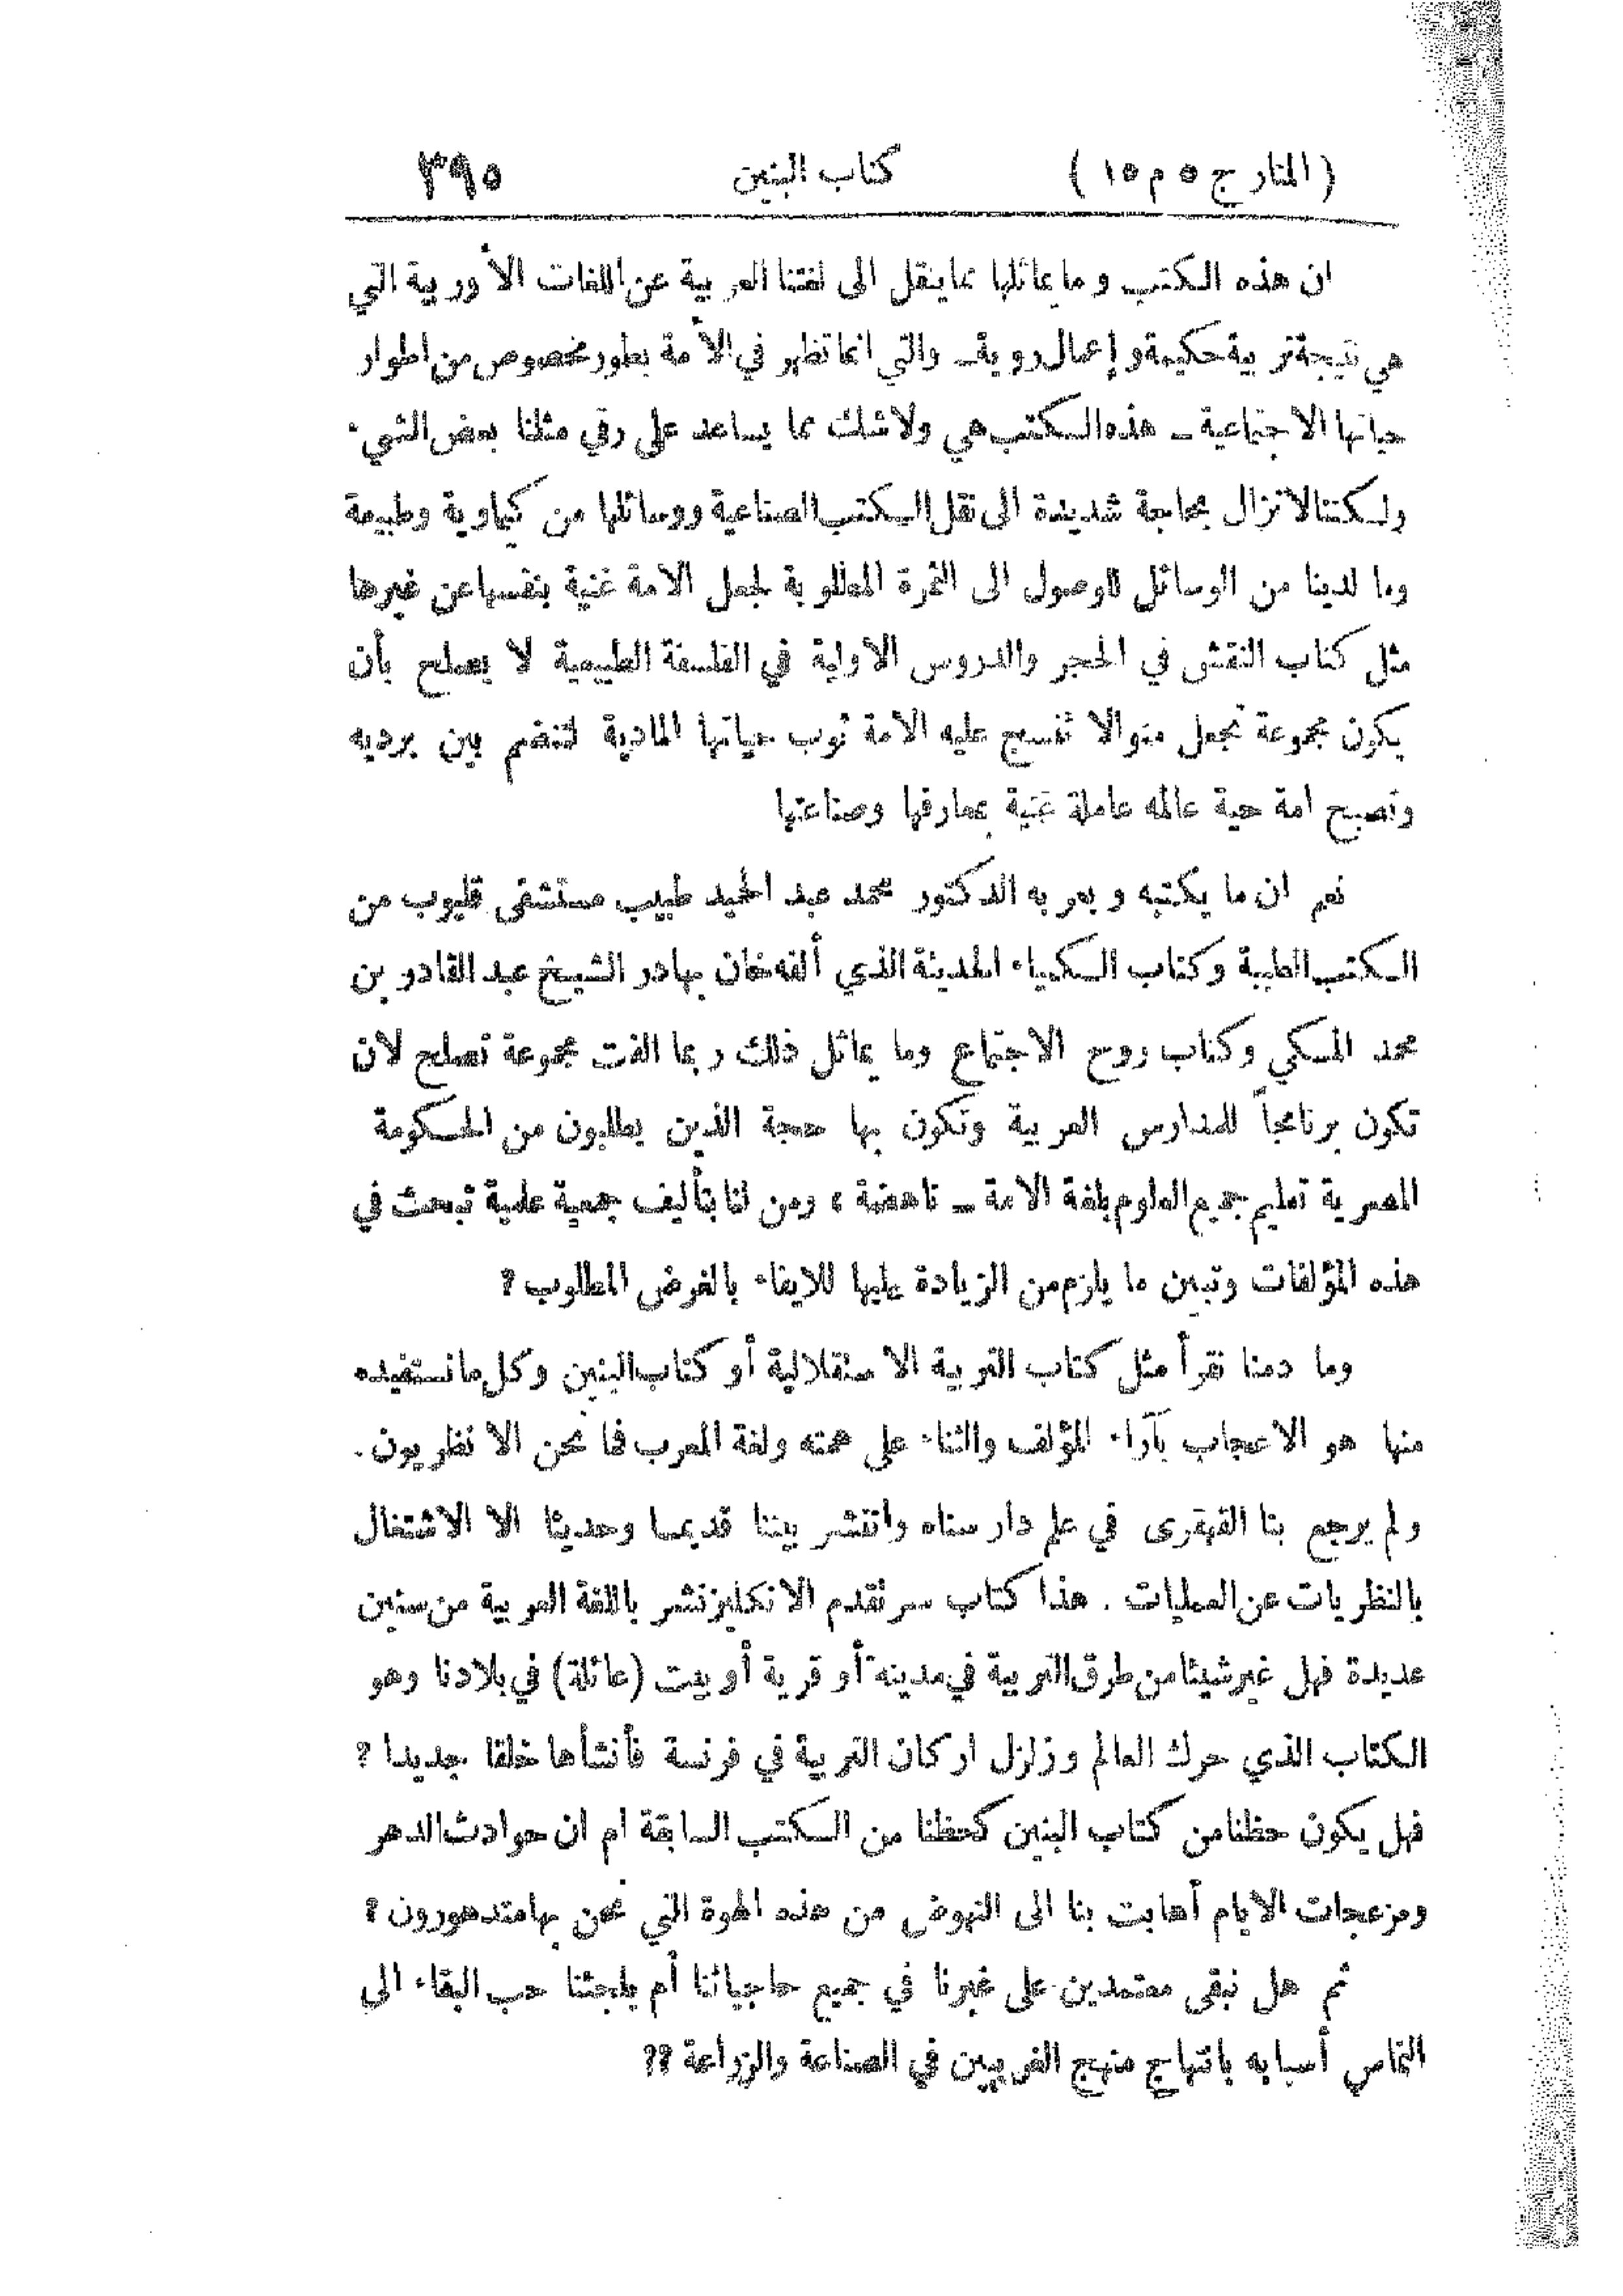 (المنار ج ٥ م ١٥) كتاب البنين ٣٩٥
ان هذه الكتب وما يماثلها مما ينقل الى لغتنا العربية عن اللغات الأوربية التي
هي نتيجة تربية حكيمة وإعمال روية ــ والتي انما تظهر في الأمة بطور مخصوص من اطوار
حياتها الاجتماعية ــ هذه الكتب هي ولا شك مما يساعد على رقي مثلنا بعض الشيء
ولكننا لا نزال بحاجة شديدة الى نقل الكتب الصناعية ووسائلها من كيماوية وطبيعة
وما لدينا من الوسائل للوصول الى الثمرة المطلوبة لجعل الامة غنية بنفسها عن غيرها
مثل كتاب النقش في الحجر والدروس الاولية في الفلسفة الطبيعية لا يصلح بأن
يكون مجموعة تجعل منوالا تنسج عليه الامة ثوب حياتها المادية لتنضم بين برديه
وتصبح امة حية عالمه عاملة غنية بمعارفها وصناعتها
نعم ان ما يكتبه ويعربه الدكتور محمد عبد الحميد طبيب مستشفى قليوب من
الكتب الطبية وكتاب الكيمياء الحديثة الذي ألفه خان بهادر الشيخ عبد القادر بن
محمد المكي وكتاب روح الاجتماع وما يماثل ذلك ربما الفت مجموعة تصلح لان
تكون برنامجاً للمدارس العربية وتكون بها حجة الذين يطلبون من الحكومة
المصرية تعليم جميع العلوم بلغة الامة ــ ناهضة ، ومن لنا بتأليف جمعية علمية تبحث في
هذه المؤلفات وتبين ما يلزم من الزيادة عليها للايفاء بالغرض المطلوب ؟
وما دمنا نقرأ مثل كتاب التربية الاستقلالية أو كتاب البنين وكل ما نستفيده
منها هو الاعجاب بآراء المؤلف والثناء على همته ولغة المعرب فما نحن الا نظريون .
ولم يرجع بنا القهقرى في علم دارسناه وانتشر بيننا قديما وحديثا الا الاشتغال
بالنظريات عن العمليات . هذا كتاب سر تقدم الانكليز نشر باللغة العربية من سنين
عديدة فهل غير شيئا من طرق التربية في مدينة أو قرية أو بيت (عائلة) في بلادنا وهو
الكتاب الذي حرك العالم وزلزل اركان التربية في فرنسة فأنشأها خلقا جديدا ؟
فهل يكون حظنا من كتاب البنين كحظنا من الكتب السابقة ام ان حوادث الدهر
ومزعجات الايام أهابت بنا الى النهوض من هذه الهوة التي نحن بها متدهورون ؟
ثم هل نبقى معتمدين على غيرنا في جميع حاجياتنا أم يلجئنا حب البقاء الى
التماس أسبابه بانتهاج منهج الغربيين في الصناعة والزراعة ؟؟